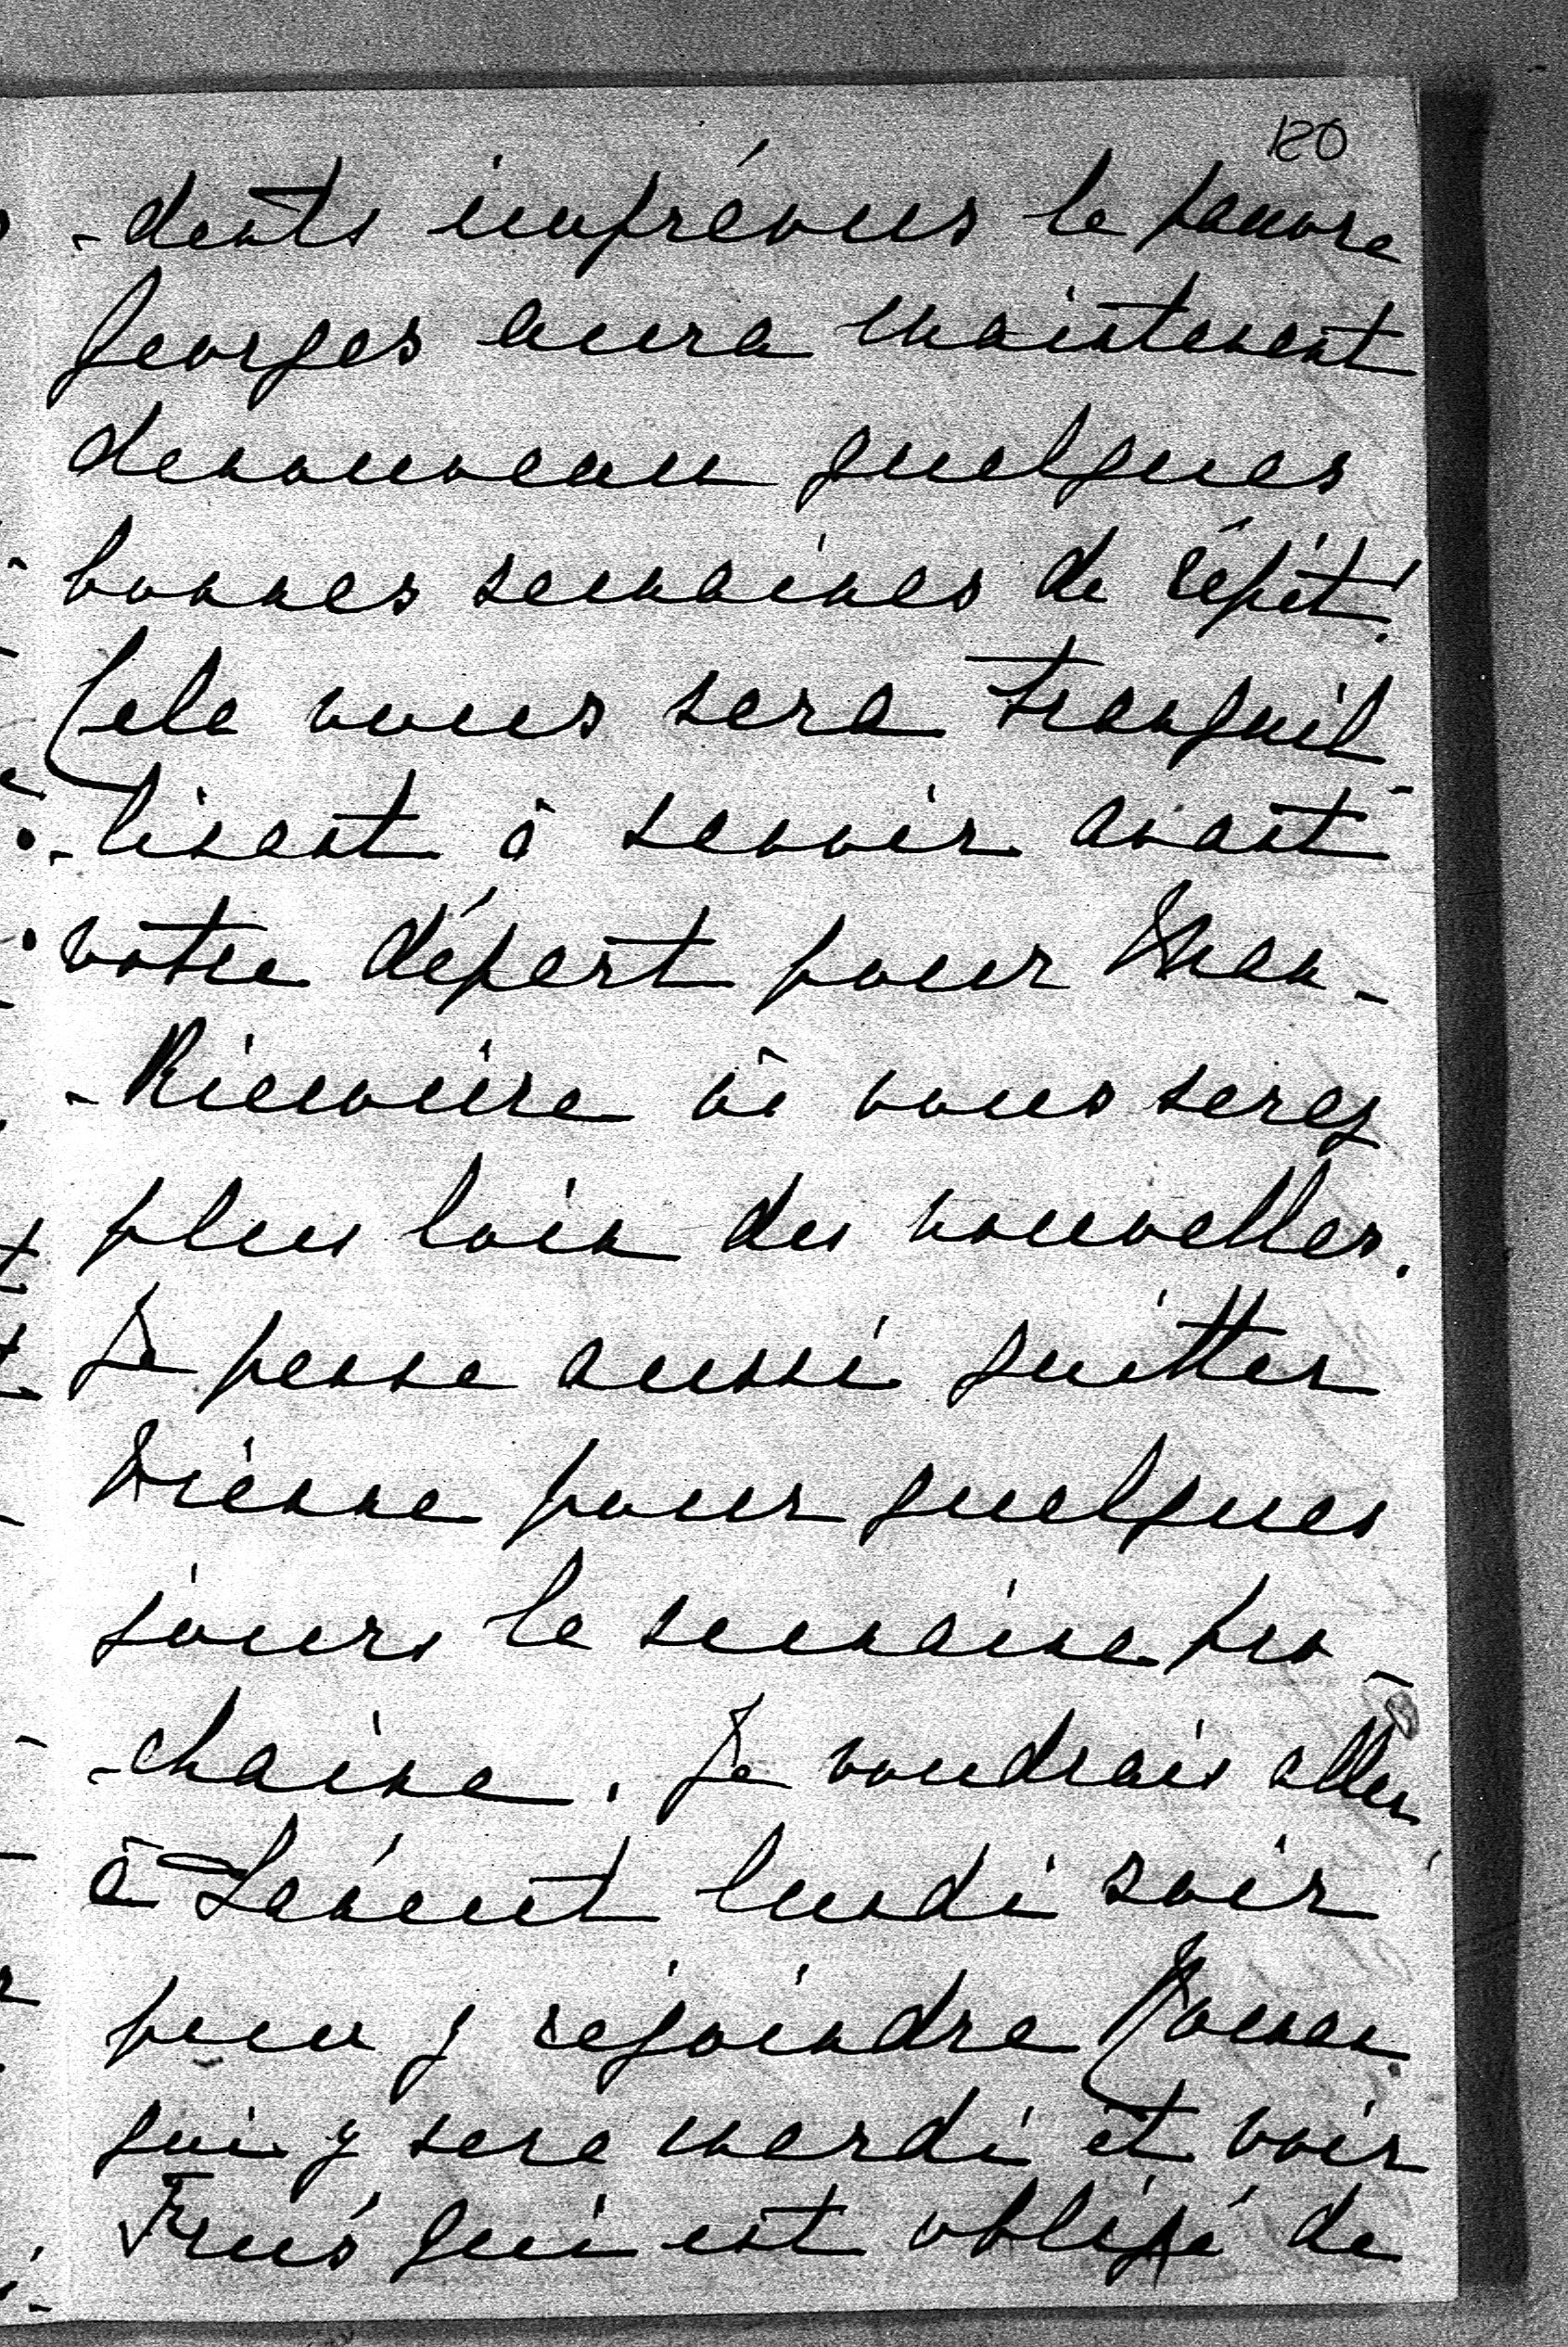 120
-dents imprévus le pauvre
Georges aura maintenant
denouveau quelques
bonnes semaines de répit!
Cela vous sera tranquil-
-lisant à savoir avant
votre départ pour Man-
-Rieuvuire où vous serez
plus loin des nouvelles.
Je pense aussi quitter
Vienne pour quelques
jours la semaine pro-
-chaine. Je voudrais aller
à Lancut lundi soir
pour y rejoindre
qui y sera mardi et voir
qui est obligé de